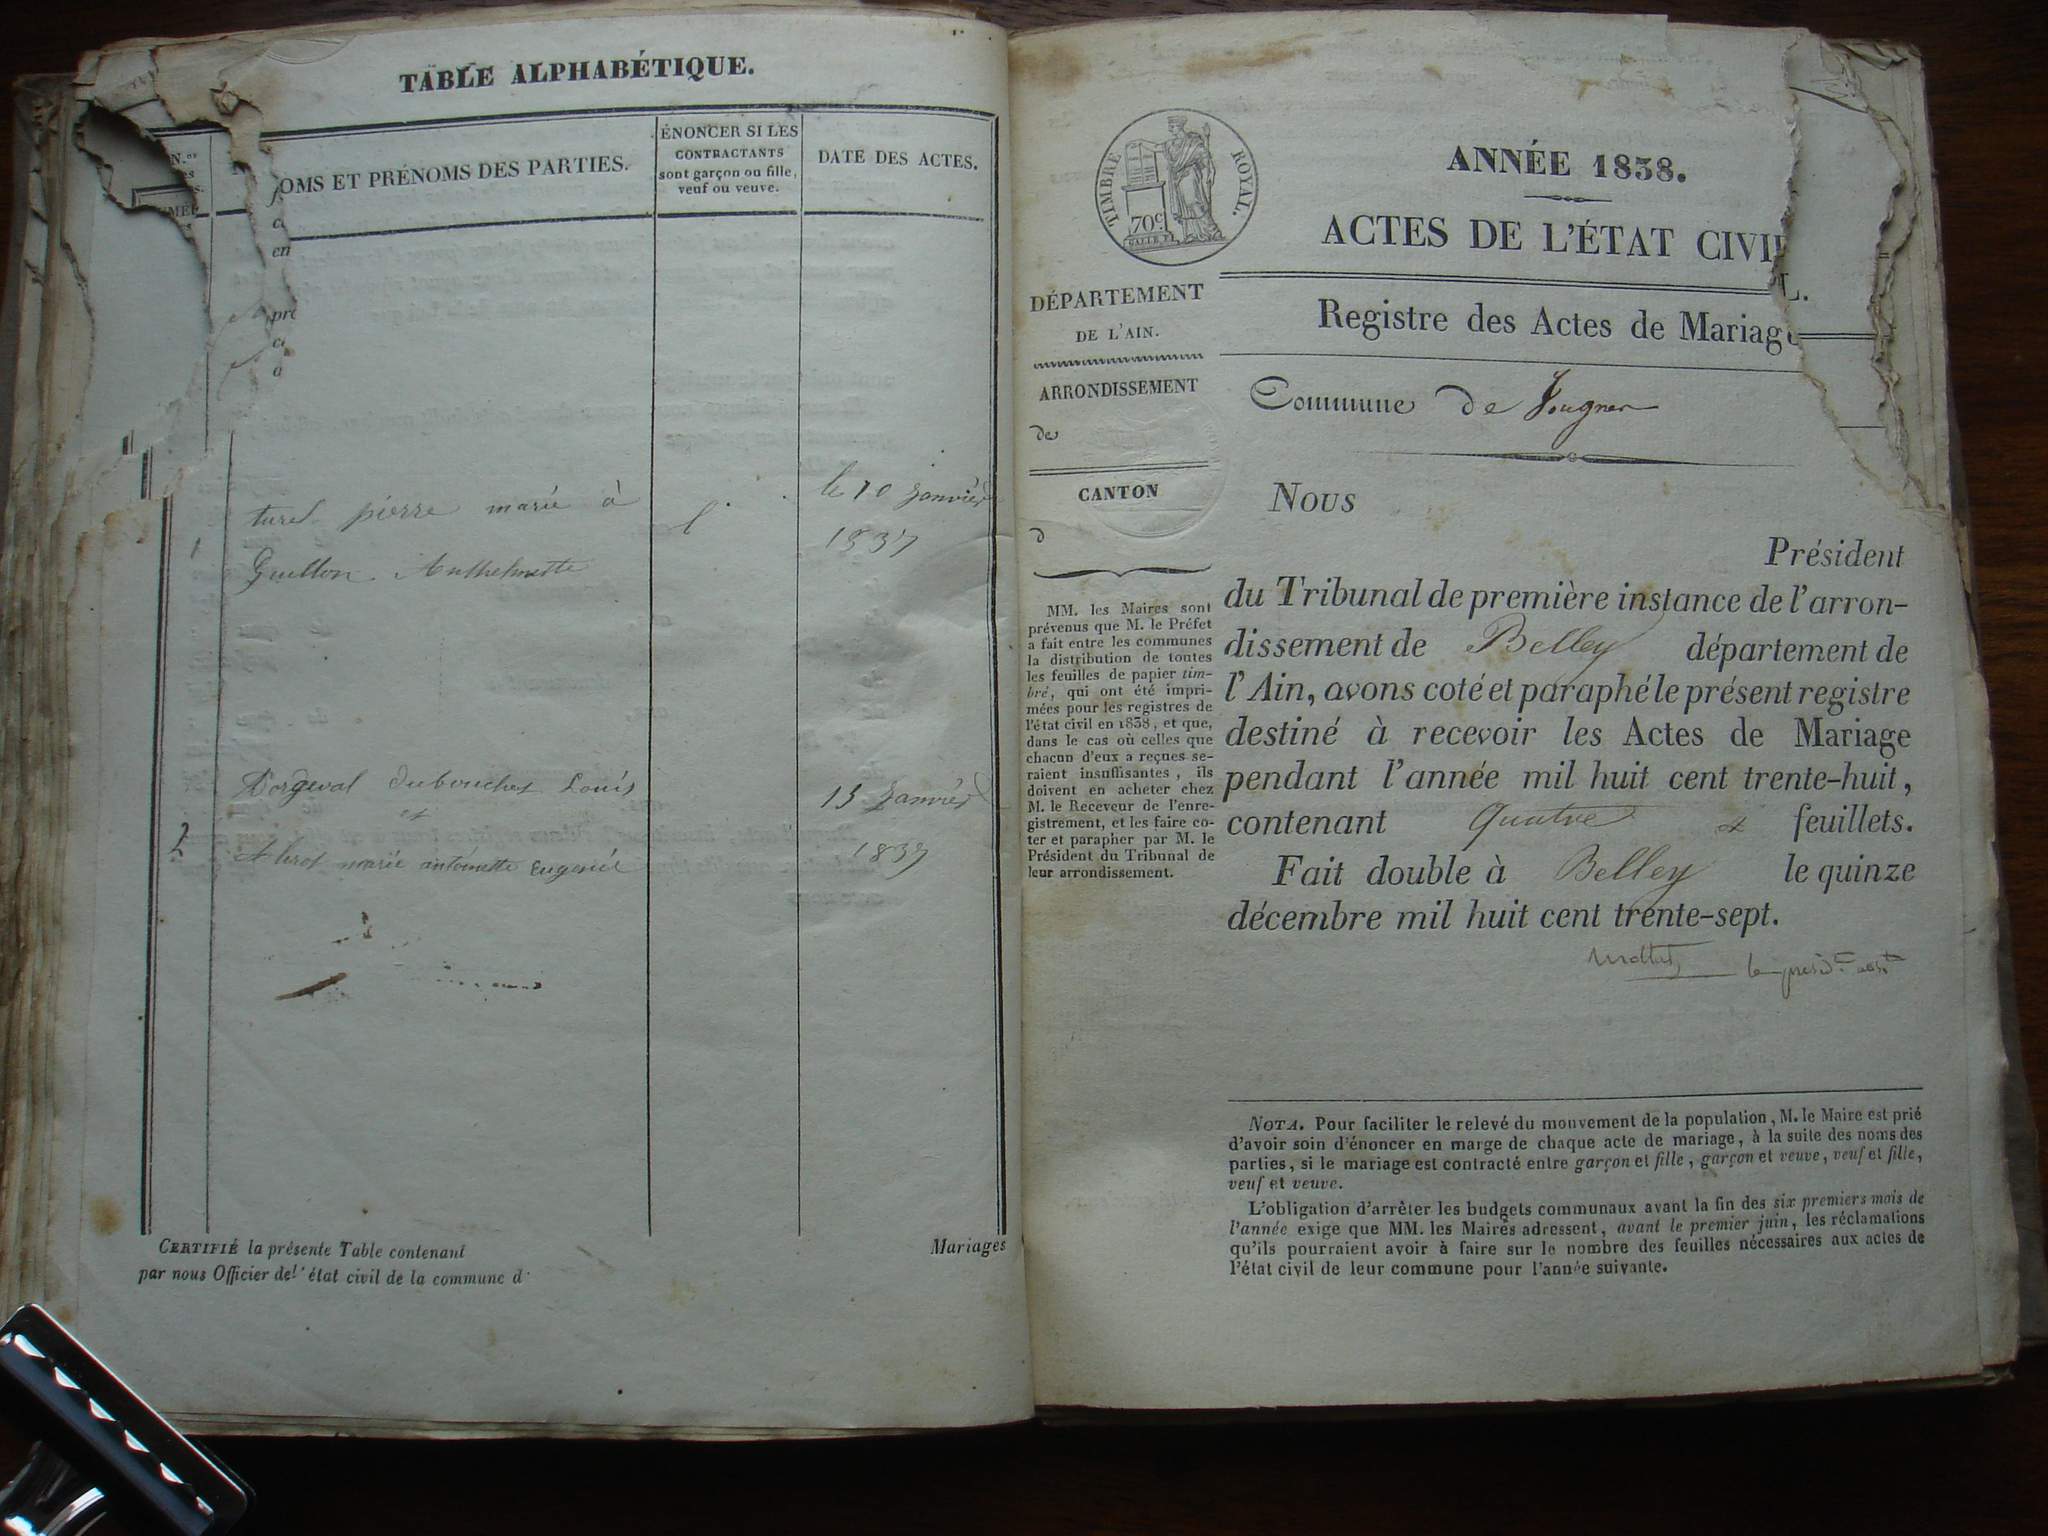 TABLE ALPHABÉTIQUE.
N.os
OMS ET PRÉNOMS DES PARTIES.
ÉNONCER SI LES
CONTRACTANTS
sont garçon ou fille,
veuf ou veuve.
DATE DES ACTES.
turel pierre marie à
le 10 janvier
1
1837
Guillon Anthelmette
Dorgeval dubouchet Louis
et
15 janvier
2
1837
marie antoinette Eugenie
CERTIFIÉ la présente Table contenant
Mariages
par nous Officier de l'état civil de la commune d
TIMBRE ROYAL.
70c
ANNÉE 1838.
ACTES DE L'ÉTAT CIVIL.
DÉPARTEMENT
DE L'AIN.
Registre des Actes de Mariage
ARRONDISSEMENT
de
Commune de
CANTON
d
MM. les Maires sont
prévenus que M. le Préfet
a fait entre les communes
la distribution de toutes
les feuilles de papier tim-
bré, qui ont été impri-
mées pour les registres de
l'état civil en 1838, et que,
dans le cas où celles que
chacun d'eux a reçues se-
raient insuffisantes, ils
doivent en acheter chez
M. le Receveur de l'enre-
gistrement, et les faire co-
ter et parapher par M. le
Président du Tribunal de
leur arrondissement.
Nous
Président
du Tribunal de première instance de l'arron-
dissement de Belley département de
l'Ain, avons coté et paraphé le présent registre
destiné à recevoir les Actes de Mariage
pendant l'année mil huit cent trente-huit,
contenant Quatre feuillets.
Fait double à Belley le quinze
décembre mil huit cent trente-sept.
NOTA. Pour faciliter le relevé du mouvement de la population, M. le Maire est prié
d'avoir soin d'énoncer en marge de chaque acte de mariage, à la suite des noms des
parties, si le mariage est contracté entre garçon et fille, garçon et veuve, veuf et fille,
veuf et veuve.
L'obligation d'arrêter les budgets communaux avant la fin des six premiers mois de
l'année exige que MM. les Maires adressent, avant le premier juin, les réclamations
qu'ils pourraient avoir à faire sur le nombre des feuilles nécessaires aux actes de
l'état civil de leur commune pour l'année suivante.